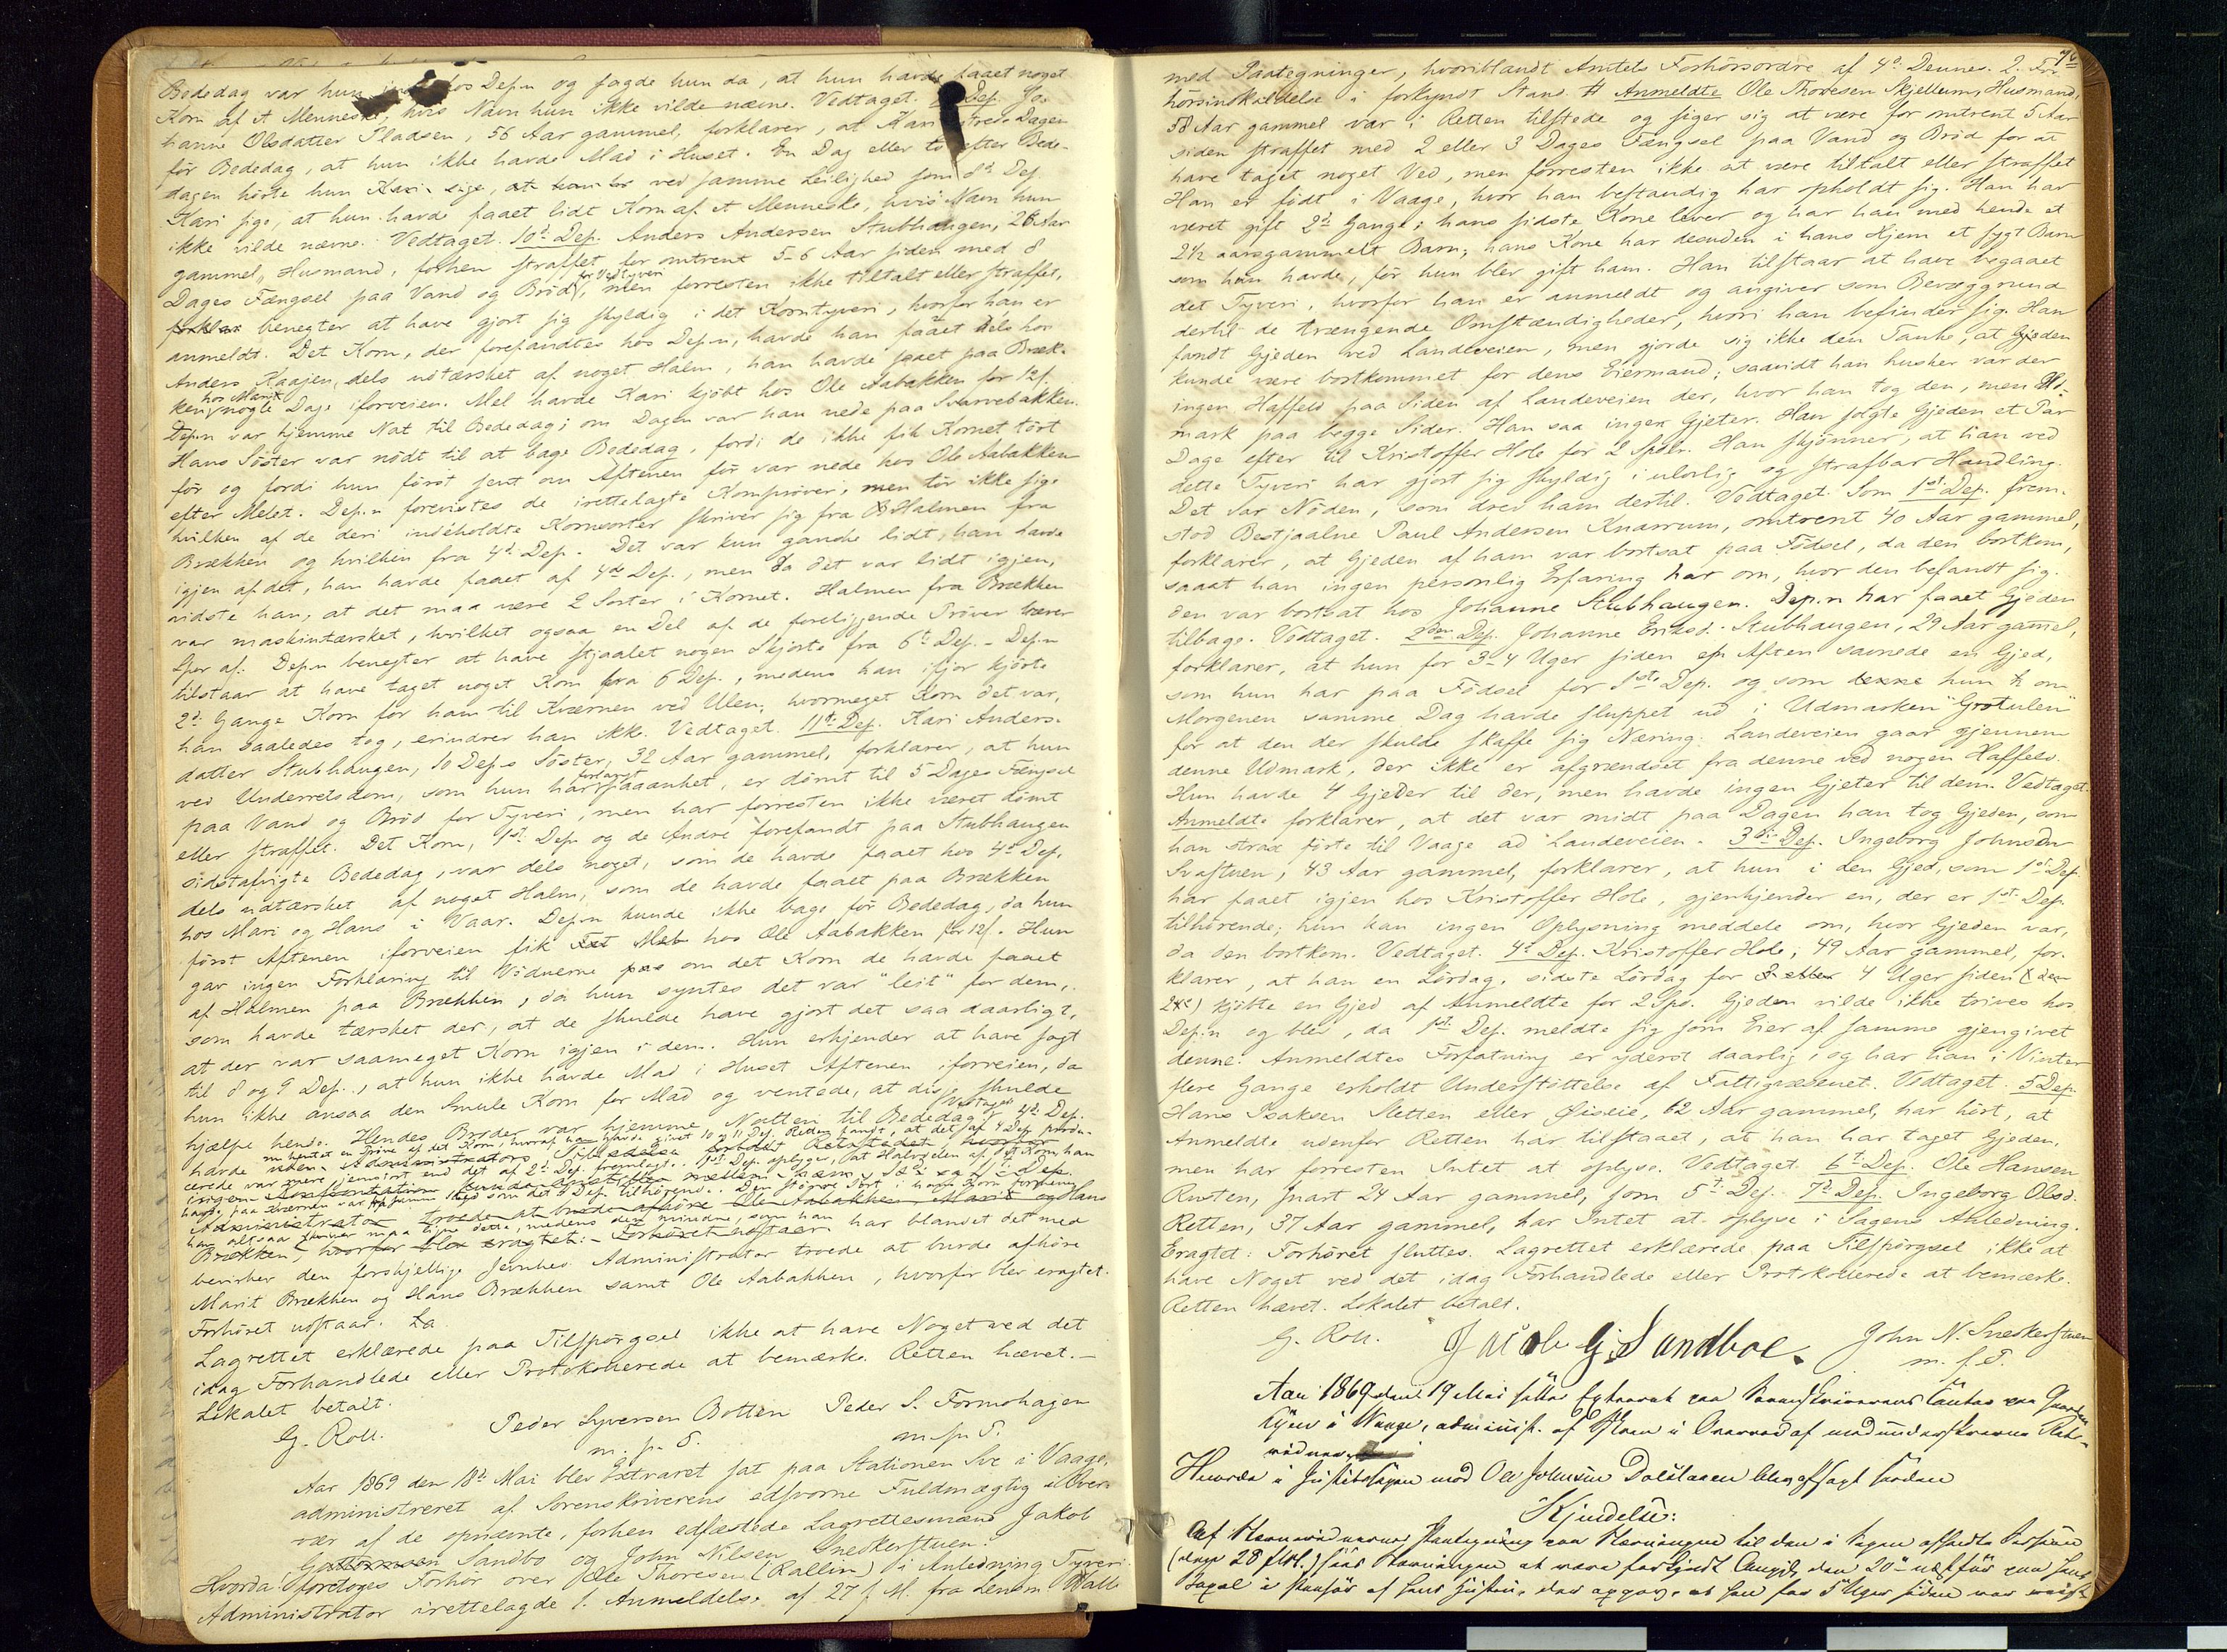 Bededag var hun inde hos Dep.n og sagde hun da, at hun havde faaet noget
Korn af et Menneske, hvis Navn hun ikke vilde nævne. Vedtaget. Dep. Jo-
hanne Olsdatter Pladsen, 56 Aar gammel, forklarer, at Kari ytrede Dagen
för Bededag, at hun ikke havde Mad i Huset. En Dag eller to efter Bede-
dagen hörte hun Kari sige, at ved samme Leilighed som 8d Dep.
Kari sige, at hun havde faaet lidt Korn af et Menneske, hvis Navn hun
ikke vilde nævne. Vedtaget. 10d Dep. Anders Andersen Stubhaugen, 26 Aar
gammel, Husmand, forhen straffet for omtrent 5-6 Aar siden med 8
Dages Fængsel paa Vand og Bröd for Vedtyveri, men forresten ikke tiltalt eller straffet,
forklar benegter at have gjort sig skyldig i det Korntyveri, hvorfor han er
anmeldt. Det Korn, der forefandtes hos Dep.n, havde han faaet dels hos
Anders Kaajen, dels udtærsket af noget Halm, han havde faaet paa Bræk-
ken hos Marit nogle Dage iforveien. Mel havde Kari kjöbt hos Ole Aabakken for 12 f.
Dep.n var hjemme Nat til Bededag; om Dagen var han nede paa Svarvebakken.
Hans Söster var nödt til at bage Bededag, fordi de ikke fik Kornet tört
för og fordi hun först sent om Aftenen för var nede hos Ole Aabakken
efter Melet. Dep.n forevistes de irettelagte Kornpröver, men tör ikke sige
hvilken af de deri indeholdte Kornsorter skriver sig fra Halmen fra
Brækken og hvilken fra 4d Dep. Det var kun ganske lidt, han havde
igjen af det, han havde faaet af 4de Dep., men da det var lidt igjen,
vidste han, at det maa være 2 Sorter i Kornet. Halmen fra Brækken
var maskintærsket, hvilket ogsaa en Del af de foreliggende Pröver bærer
Spor af. Dep.n benegter at have stjaalet nogen Skjorte fra 6t Dep. - Dep.n
tilstaar at have taget noget Korn fra 6 Dep., medens han ifjor kjörte
2d Gange Korn for ham til Kværnen ved Ulen, hvormeget Korn det var,
han saaledes tog, erindrer han ikke. Vedtaget. 11te Dep. Kari Anders-
datter Stubhaugen, 10 Dep.s Söster, 32 Aar gammel, forklarer, at hun
ved Underretsdom, som hun har forlangt paaanket, er dömt til 5 Dages Fængsel
paa Vand og Bröd for Tyveri, men har forresten ikke været dömt
eller straffet. Det Korn, 1st Dep. og de Andre forefandt paa Stubhaugen
sidstafvigte Bededag, var dels noget, som de havde faaet hos 4d Dep.,
dels udtærsket af noget Halm, som de havde faaet paa Brækken
hos Mari og Hans i Vaar. Dep.n kunde ikke bage för Bededag, da hun
först Aftenen iforveien fik Mel hos Ole Aabakken for 12 f. Hun
gav ingen Forklaring til Vidnerne om det Korn de havde faaet
af Halmen paa Brækken, da hun syntes det var "leit" for dem,
som havde tærsket der, at de skulde have gjort det saa daarligt,
at der var saameget Korn igjen i dem. Hun erkjender at have sagt
til 8 og 9 Dep., at hun ikke havde Mad i Huset Aftenen iforveien, da
hun ikke ansaa den Smule Korn for Mad og ventede, at disse skulde
hjælpe hende. Hendes Broder var hjemme Natten til Bededag. Vedtaget. 4d Dep.
havde nu hentet en Pröve af det Korn, hvoraf han havde givet 10 og 11 Dep. Retten fandt, at det af 4 Dep. produ-
cerede var mere jennört end det af 2d Dep. fremlagte. 1st Dep. oplyser, at Halvdelen af det Korn, han
havde paa Kværnen var af samme Slags som det 4 Dep. tilhörende. Den större Sort i hans Korn formener
han altsaa skriver maa ligne dette, medens det mindre, som han har blandet det med
bevirker den forskjellige Jevnhed. Administrator troede at burde afhöre
Marit Brækken og Hans Brækken samt Ole Aabakken, hvorfor blev eragtet:
Forhöret udstaar.
Lagrettet erklærede paa Tilspörgsel ikke at have Noget ved det
idag Forhandlede eller Protokollerede at bemærke. Retten hævet. -
Lokalet betalt.
G. Roll. Peder Syversen Botten Peder S. Formohagen
m. p. P. m. p. P.
Aar 1869 den 18d Mai blev Extraret sat paa Stationen Sve i Vaage,
administreret af Sorenskriverens edsvorne Fuldmægtig i Over-
vær af de opnævnte, forhen edfæstede Lagrettesmænd Jakob
Guttormsen Sandbo og John Nilsen Snekkerstuen.
Hvorda: foretoges Forhör over Ole Thoresen (Kallin) i Anledning Tyveri
Administrator irettelagde 1. Anmeldelse af 27 f. M. fra Lensm. Wall
med Paategninger, hvoriblandt Amtets Forhörsordre af 4d Dennes. 2. For-
hörsindkaldelse i forkyndt Stand. Anmeldte Ole Thoresen Skjellum, Husmand,
58 Aar gammel var i Retten tilstede og siger sig at være for omtrent 5 Aar
siden straffet med 2 eller 3 Dages Fængsel paa Vand og Bröd for at
have taget noget Ved, men forresten ikke at være tiltalt eller straffet
Han er födt i Vaage, hvor han bestandig har opholdt sig. Han har
været gift 2d Gange; hans sidste Kone lever og har han med hende et
2½ aarsgammelt Barn; hans Kone har desuden i hans Hjem et sygt Barn
som hun havde, för hun blev gift ham. Han tilstaar at have begaaet
det Tyveri, hvorfor han er anmeldt og angiver som Bevæggrund
dertil de trængende Omstændigheder, hvori han befinder sig. Han
fandt Gjeden ved Landeveien, men gjorde sig ikke den Tanke, at Gjeden
kunde være bortkommet for dens Eiermand; saavidt han husker var der
ingen Haffeld paa Siden af Landeveien der, hvor han tog den, men Ud-
mark paa begge Sider. Han saa ingen Gjeter. Han solgte Gjeden et Par
Dage efter til Kristoffer Hole for 2 Spdlr. Han skjönner, at han ved
dette Tyveri har gjort sig skyldig i ulovlig og strafbar Handling.
Det var Nöden, som drev ham dertil. Vedtaget. Som 1st Dep. frem-
stod Bestjaalne Paul Andersen Knarrum, omtrent 40 Aar gammel,
forklarer, at Gjeden af ham var bortsat paa Födsel, da den bortkom,
saaat han ingen personlig Erfaring har om, hvor den befandt sig.
Den var bortsat hos Johanne Stubhaugen. Dep.n har faaet Gjeden
tilbage. Vedtaget. 2den Dep. Johanne Eriksd. Stubhaugen, 29 Aar gamel,
forklarer, at hun for 3-4 Uger siden en Aften savnede en Gjed,
som hun har paa Födsel for 1ste Dep. og som hun om
Morgenen samme Dag havde sluppet ud i Udmarken "Grotulen"
for at den der skulde skaffe sig Næring. Landeveien gaar gjennem
denne Udmark, der ikke er afgrændset fra denne ved nogen Haffeld.
Hun havde 4 Gjeder til der, men havde ingen Gjeter til dem. Vedtaget.
Anmeldte forklarer, at det var midt paa Dagen han tog Gjeden, som
han strax förte til Vaage ad Landeveien. 3die Dep. Ingeborg Johnsdn
Svastuen, 43 Aar gammel, forklarer, at hun i den Gjed, som 1st Dep.
har faaet igjen hos Kristoffer Hole, gjenkjender en, der er 1st Dep.
tilhörende; hun kan ingen Oplysning meddele om, hvor Gjeden var,
da den bortkom. Vedtaget. 4d Dep. Kristoffer Hole, 49 Aar gammel, for-
klarer, at han en Lördag, sidste Lördag for 4 Uger siden (den
24de) kjöbte en Gjed af Anmeldte for 2 Spd. Gjeden vilde ikke trives hos
Dep.n og blev, da 1st Dep. meldte sig som Eier af samme gjengivet
denne. Anmeldtes Forfatning er yderst daarlig, og har han i Vinter
flere Gange erholdt Understöttelse af Fattigvæsenet. Vedtaget. 5 Dep.
Hans Isaksen Sletten eller Öiseie, 62 Aar gammel, har hört, at
Anmeldte udenfor Retten har tilstaaet, at han har taget Gjeden,
men har forresten Intet at oplyse. Vedtaget. 6t Dep. Ole Hansen
Rusten, snart 24 Aar gammel, som 5t Dep. 7d Dep. Ingeborg Olsd.
Retten, 37 Aar gammel, har Intet at oplyse i Sagens Anledning.
Eragtet: Forhöret sluttes. Lagrettet erklærede paa Tilspörgsel ikke at
have Noget ved det idag Forhandlede eller Protokollerede at bemærke.
Retten hævet. Lokalet betalt.
G. Roll. Jacob G. Sandboe. John N. Snekkerstuen
m. f. P.
Aar 1869 den 19 Mai sattes Extraret paa Sorenskriverens Contor paa Gaarden
i Vaage, administ. af i Overværd af medunderskrevne Rets-
vidner.
Hvorda i Justitssagen mod Ole Johnsen blev afsagt saadan
Kjendelse:
Af Stævnevidnernes Paategning paa Stævningen til den i Sagen afholdte Session